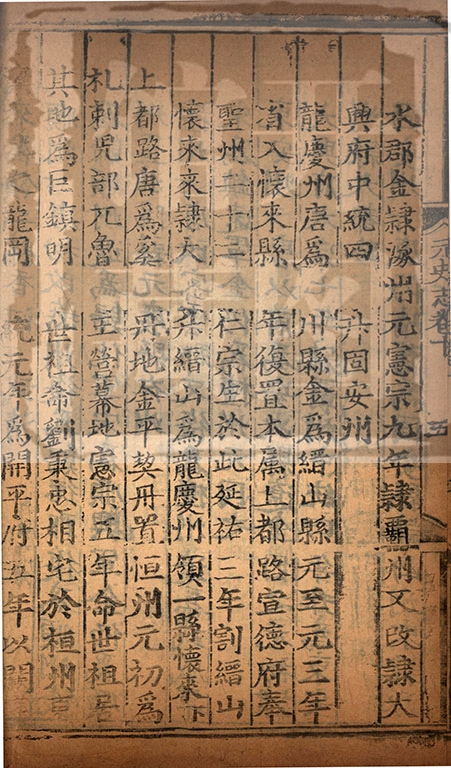 元史志卷十 五
水郡金隷涿州元憲宗九年隷霸州又改隷大
興府中統四 升固安州
龍慶州唐為 川縣金為縉山縣元至元三年
省入懷來縣 年復置本属上都路宣德府奉
聖州二十二 仁宗生於此延祐三年割縉山
懷來來隷大 升縉山為龍慶州領一縣懷來下
上都路唐為奚 丹地金平契丹置恒州元初為
札剌児部兀魯 主營幕地憲宗五年命世祖居
其地為巨鎮明 世祖命劉秉忠相宅於桓州東
龍岡 統元年為開平府五年以開